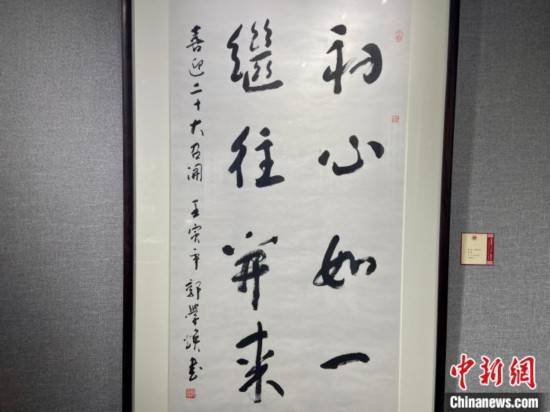 初心如一
继往开来
喜迎二十大召开 壬寅年 郭学焕书
中新网
Chinanews.com